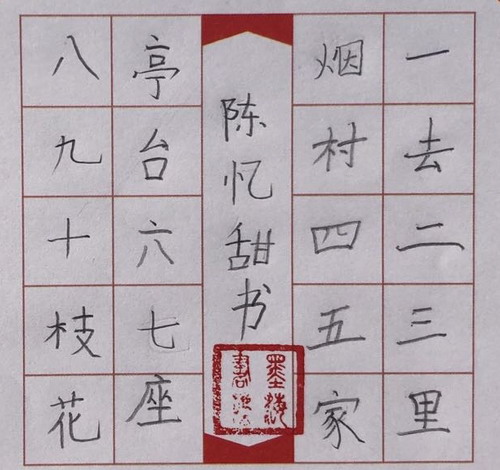 一去二三里
烟村四五家
陈忆甜书
亭台六七座
八九十枝花